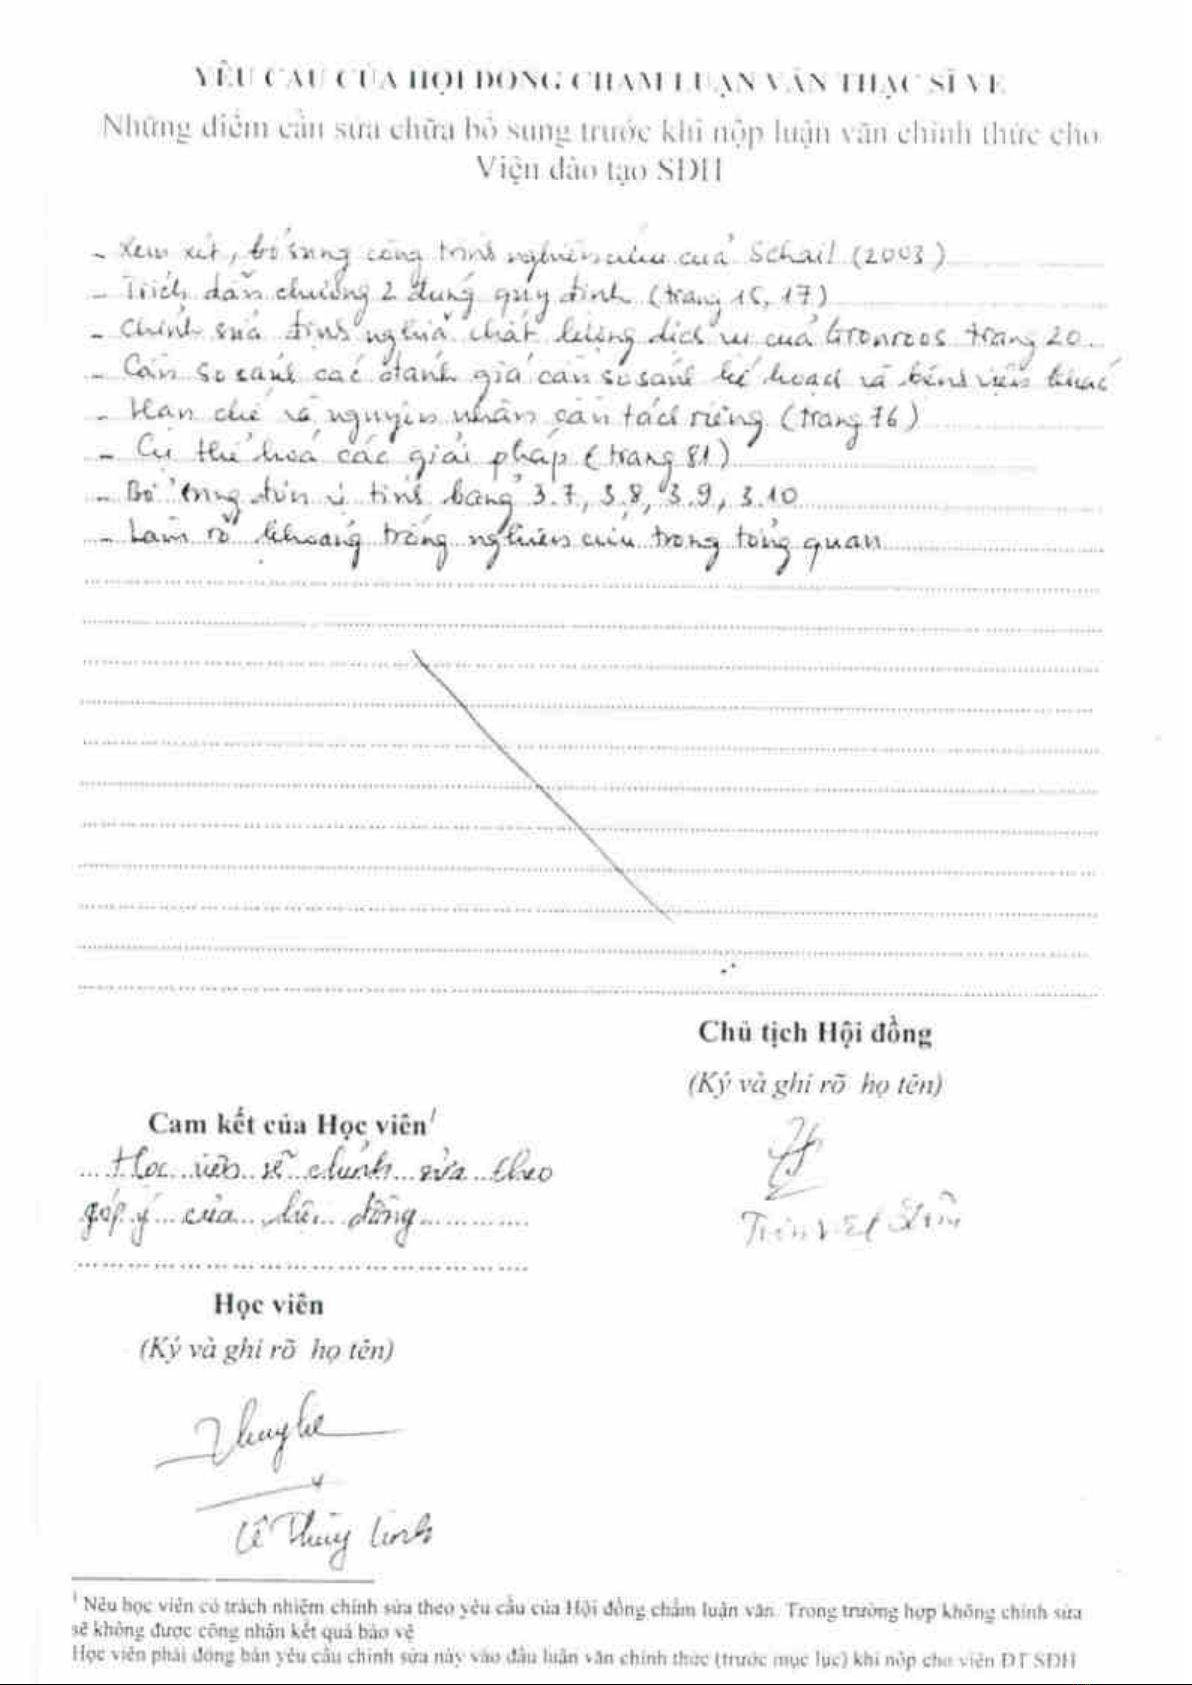 YÊU CẦU CỦA HỘI ĐỒNG CHẤM LUẬN VĂN THẠC SĨ VỀ
Những điểm cần sửa chữa bổ sung trước khi nộp luận văn chính thức cho
Viện đào tạo SĐH
- Xem xét, bổ sung công trình nghiên cứu của Schail (2003)
- Trích dẫn chương 2 đúng quy định (trang 16, 17)
- Chỉnh sửa định nghĩa chất lượng dịch vụ của Gronroos trang 20.
- Cần so sánh các đánh giá cần so sánh kế hoạch và bệnh viện khác
- Hạn chế và nguyên nhân cần tách riêng (trang 76)
- Cụ thể hoá các giải pháp (trang 81)
- Bổ sung đơn vị tính bảng 3.7, 3.8, 3.9, 3.10
- Làm rõ khoảng trống nghiên cứu trong tổng quan
Chủ tịch Hội đồng
(Ký và ghi rõ họ tên)
Cam kết của Học viên¹
Học viên sẽ chỉnh sửa theo
góp ý của hội đồng
Học viên
(Ký và ghi rõ họ tên)
Lê Thùy Linh
¹ Nếu học viên có trách nhiệm chỉnh sửa theo yêu cầu của Hội đồng chấm luận văn. Trong trường hợp không chỉnh sửa
sẽ không được công nhận kết quả bảo vệ
Học viên phải đóng bản yêu cầu chỉnh sửa này vào đầu luận văn chính thức (trước mục lục) khi nộp cho viện ĐT SĐH